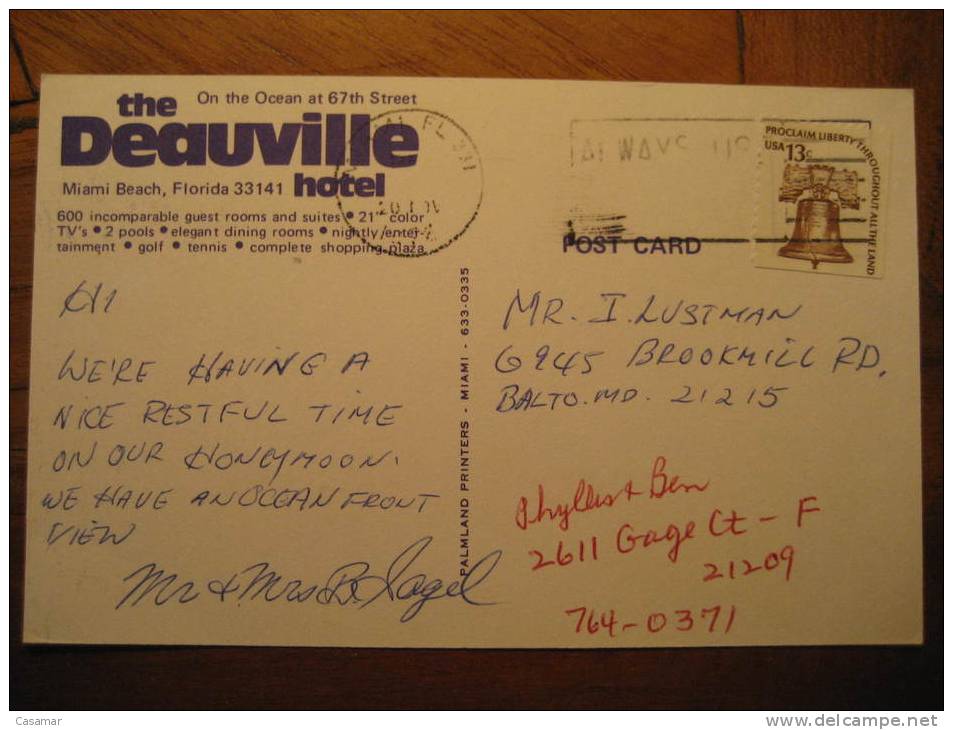 the
On the Ocean at 67th Street
Deauville
Miami Beach, Florida 33141 hotel
600 incomparable guest rooms and suites • 21" color
TV's • 2 pools • elegant dining rooms • nightly enter-
tainment • golf • tennis • complete shopping plaza
HI
WE'RE HAVING A
NICE RESTFUL TIME
ON OUR HONEYMOON.
WE HAVE AN OCEAN FRONT
VIEW
Mr & Mrs B. Sagel
PALMLAND PRINTERS - MIAMI - 633-0335
FL 331
ALWAYS
PROCLAIM LIBERTY THROUGHOUT ALL THE LAND
USA 13c
POST CARD
MR. I. LUSTMAN
6945 BROOKMILL RD.
BALTO. MD. 21215
Phyllis + Ben
2611 Gage Ct - F
21209
764-0371
Casamar
www.delcampe.net